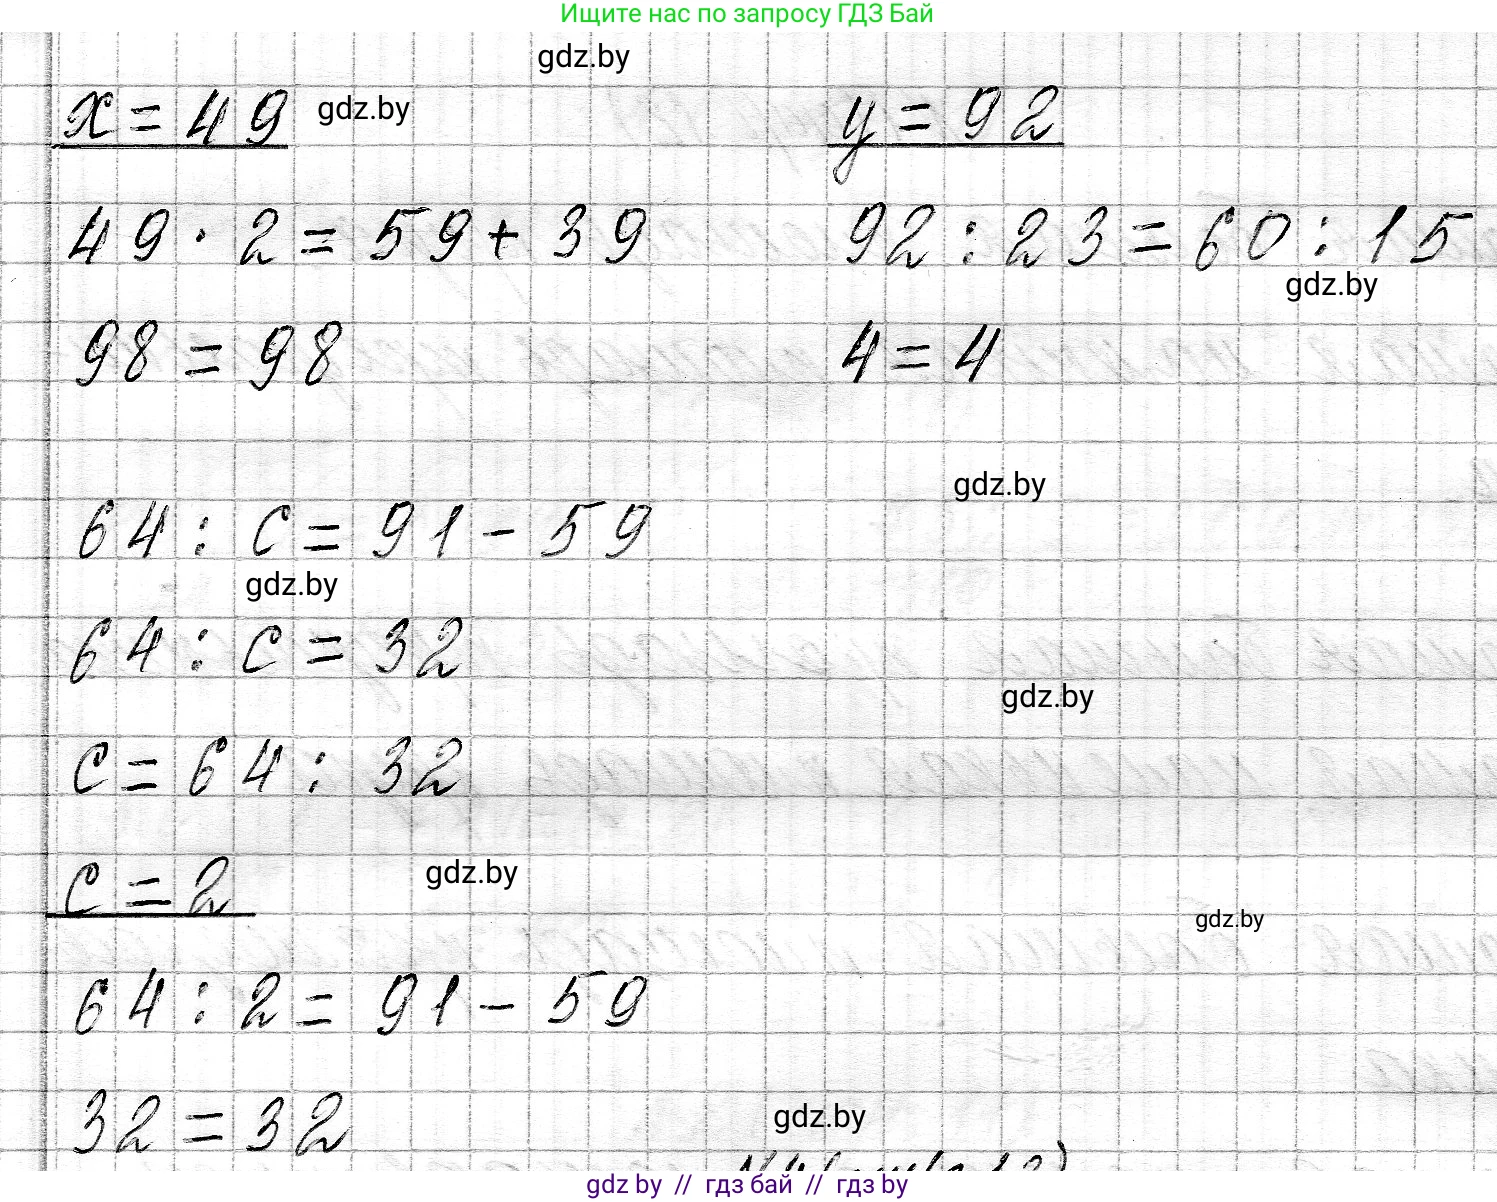 Ищите нас по запросу ГДЗ Бай
gdz.by
x = 49 gdz.by y = 92
49 · 2 = 59 + 39 92 : 23 = 60 : 15
gdz.by
98 = 98 4 = 4
gdz.by
64 : c = 91 - 59
gdz.by
64 : c = 32
gdz.by
c = 64 : 32
c = 2 gdz.by
gdz.by
64 : 2 = 91 - 59
32 = 32 gdz.by
gdz by // гдз бай // гдз by